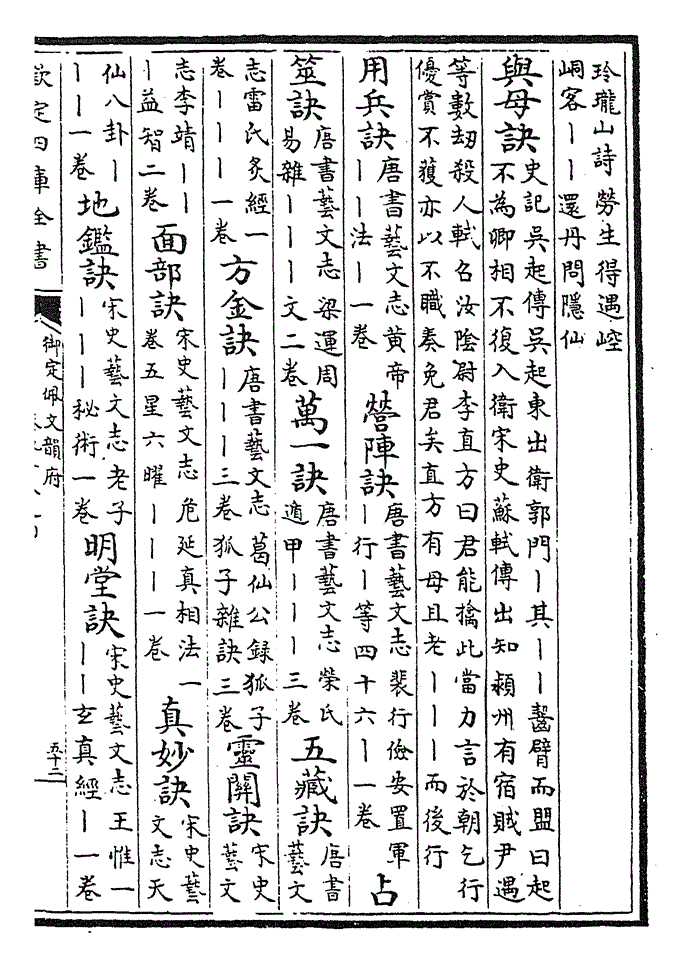 玲瓏山詩勞生得遇崆
峒客丨丨還丹問隱仙
與母訣
史記吳起傳吳起東出衛郭門丨其丨丨齧臂而盟曰起
不為卿相不復入衛宋史蘇軾傳出知潁州有宿賊尹遇
等數刼殺人軾召汝陰尉李直方曰君能擒此當力言於朝乞行
優賞不獲亦以不職奏免君矣直方有母且老丨丨丨而後行
用兵訣
唐書藝文志黃帝
丨丨法丨一卷
營陣訣
唐書藝文志裴行儉安置軍
丨行丨等四十六丨一卷
占
筮訣
唐書藝文志梁運周
易雜丨丨文二卷
萬一訣
唐書藝文志榮氏
遁甲丨丨丨三卷
五藏訣
唐書
藝文
志雷氏炙經一
卷丨丨丨一卷
方金訣
唐書藝文志葛仙公録狐子
丨丨丨三卷狐子雜訣三卷
靈關訣
宋史
藝文
志李靖丨丨
丨益智二卷
面部訣
宋史藝文志危延真相法一
卷五星六曜丨丨丨一卷
真妙訣
宋史藝
文志天
仙八卦丨
丨丨一卷
地鑑訣
宋史藝文志老子
丨丨丨秘術一卷
明堂訣
宋史藝文志王惟一
丨丨玄真經丨一卷
欽定四庫全書
御定佩文韻府
五十二